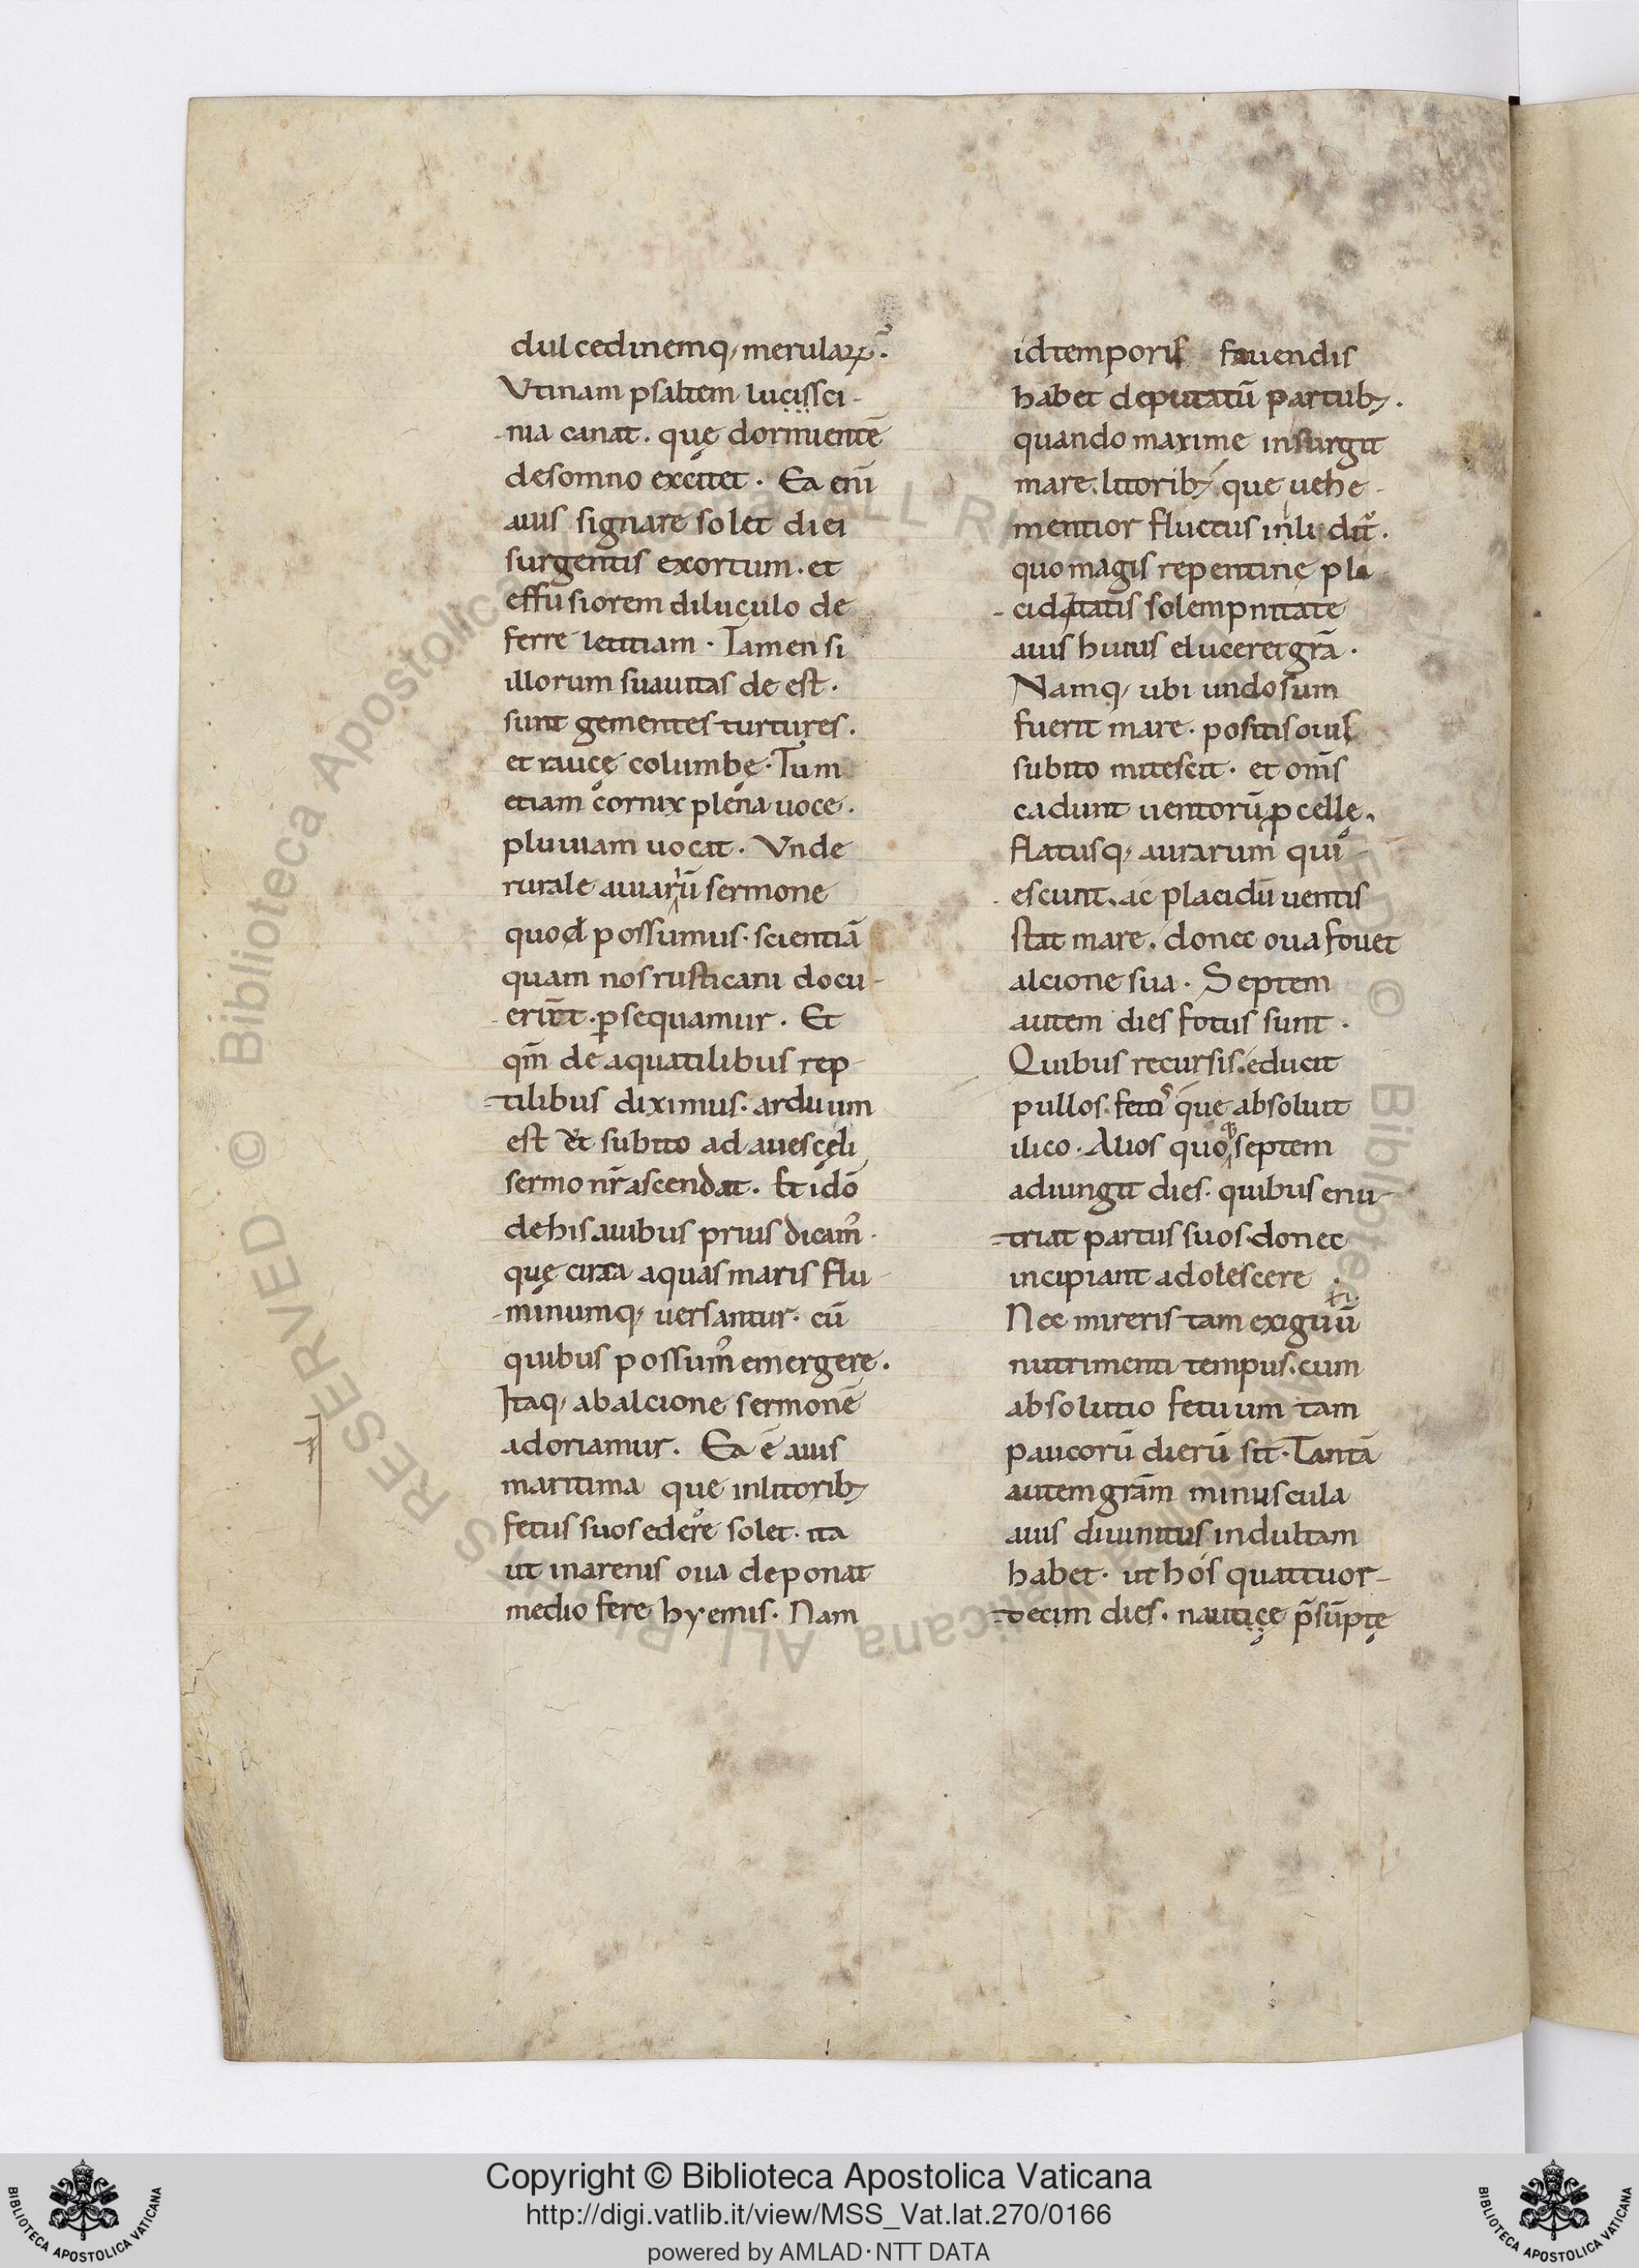 dulcedinemq; merulaꝝ.
Vtinam psaltem lucissci-
nia canat. quę dormientē
desomno excitet. Ea eni
auis signare solet diei
surgentis exortum. et
effusiorem diluculo de
ferre letitiam. Tamen si
illorum suauitas de est.
sunt gementes turtures.
et raucę columbę. Tum
etiam cornix plena uoce.
pluuiam uocat. Vnde
rurale auiarıū sermone
quod possumus. scientiā
quam nos rusticani docu-
erint. ꝑsequamur. Et
qm̄ de aquatilibus rep
tilibus diximus. arduum
est et subito ad aues cęli
sermo nr̄ ascendat. Et idō
dehis auibus prius dicam᷒.
quę circa aquas maris flu-
minumq; uersantur. cū
quibus possum᷒ emergere.
Itaq; abalcione sermonē
adoriamur. Ea ē auis
maritima quę inlitorib;
fetus suos edere solet. ita
ut inarenis oua deponat
medio fere hyemis. Nam
idtemporis fouendis
habet deputatū partub;.
quando maxime insurgit
mare. litorib; que uehe-
mentior fluctus inlidit᷑.
quo magis repentinę pla
ciditatis solempnitate
auis huius eluceret gr̄a.
Namq; ubi undosum
fuerit mare. positis ouis
subito mitescit. et om̄s
cadunt uentorū ꝓcellę.
flatusq; aurarum qui-
escunt. ac placidū uentis
stat mare. donec oua fouet
alcione sua. Septem
autem dies fotus sunt.
Quibus recursis. educit
pullos. fetus que absoluit
ilico. Alios quoqꝫ septem
adiungit dies. quibus enu-
triat partus suos. donec
incipiant adolescere.
Nec mireris tam exiguū
nutrimenti tempus. cum
absolutio fetuum tam
paucorū dierū sit. Tantā
autem gr̄am minuscula
auis diuinitus indultam
habet. ut hos quattuor-
decim dies. nauticę p̄sūptę
Copyright © Biblioteca Apostolica Vaticana
http://digi.vatlib.it/view/MSS_Vat.lat.270/0166
powered by AMLAD·NTT DATA
BIBLIOTECA APOSTOLICA VATICANA
BIBLIOTECA APOSTOLICA VATICANA